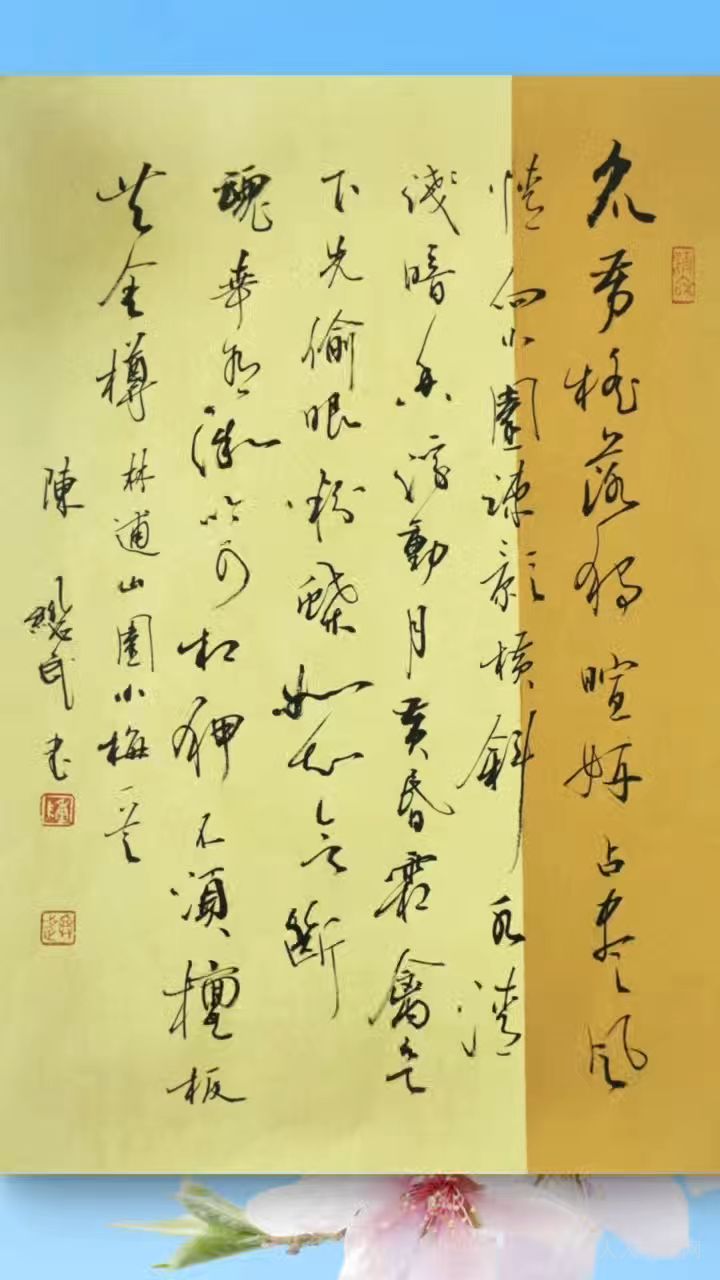 众芳摇落獨暄妍占盡風
情向小園疎影横斜水清
淺暗香浮動月黄昏霜禽欲
下先偷眼粉蝶如知合斷
魂幸有微吟可相狎不須檀板
共金樽 林逋山園小梅一首
陳民书